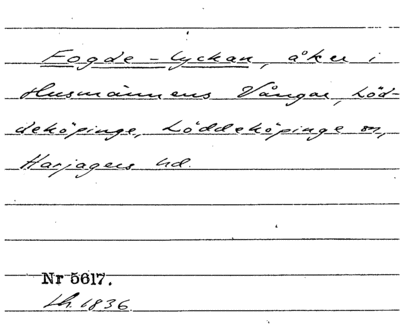 Fogde-lyckan, åker i
Husmännens Vångar, Löd-
deköpinge, Löddeköpinge sn,
Harjagers hd.
Nr 5617.
Lh. 1836